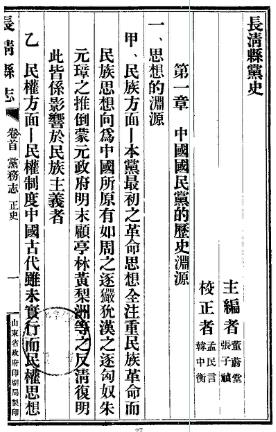 長清縣黨史
主編者 董蒔堂
張子順
校正者 孟民言
韓中衡
第一章 中國國民黨的歷史淵源
一、思想的淵源
甲、民族方面—本黨最初之革命思想全注重民族革命而
民族思想向為中國所原有如周之逐玁狁漢之逐匈奴朱
元璋之推倒蒙元政府明末顧亭林黃梨洲等之反清復明
此皆係影響於民族主義者
乙 民權方面—民權制度中國古代雖未實行而民權思想
長清縣志
卷首 黨務志 正史
一
山東省政府印刷局製印